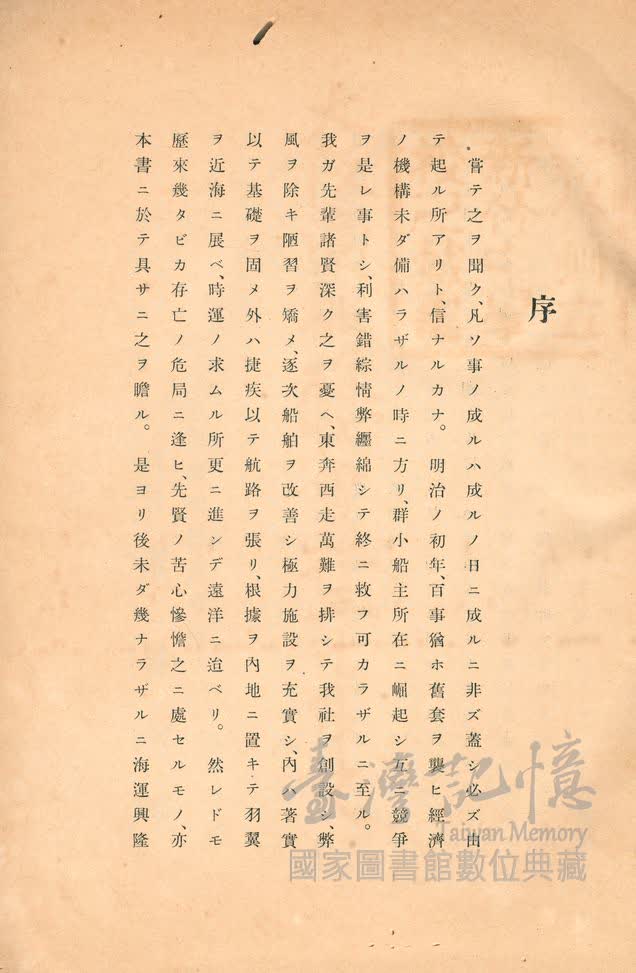 序
嘗テ之ヲ聞ク、凡ソ事ノ成ルハ成ルノ日ニ成ルニ非ズ蓋シ必ズ由
テ起ル所アリト、信ナルカナ。明治ノ初年、百事猶ホ舊套ヲ襲ヒ經濟
ノ機構未ダ備ハラザルノ時ニ方リ、群小船主所在ニ崛起シ互ニ競爭
ヲ是レ事トシ、利害錯綜情弊纒綿シテ終ニ救フ可カラザルニ至ル。
我ガ先輩諸賢深ク之ヲ憂ヘ、東奔西走萬難ヲ排シテ我社ヲ創設シ、弊
風ヲ除キ陋習ヲ矯メ、逐次船舶ヲ改善シ極力施設ヲ充實シ、內ハ著實
以テ基礎ヲ固メ外ハ捷疾以テ航路ヲ張リ、根據ヲ內地ニ置キテ羽翼
ヲ近海ニ展ベ、時運ノ求ムル所更ニ進ンデ遠洋ニ迨ベリ。然レドモ
歷來幾タビカ存亡ノ危局ニ逢ヒ、先賢ノ苦心慘憺之ニ處セルモノ、亦
本書ニ於テ具サニ之ヲ瞻ル。是ヨリ後未ダ幾ナラザルニ海運興隆
臺灣記憶
Taiwan Memory
國家圖書館數位典藏